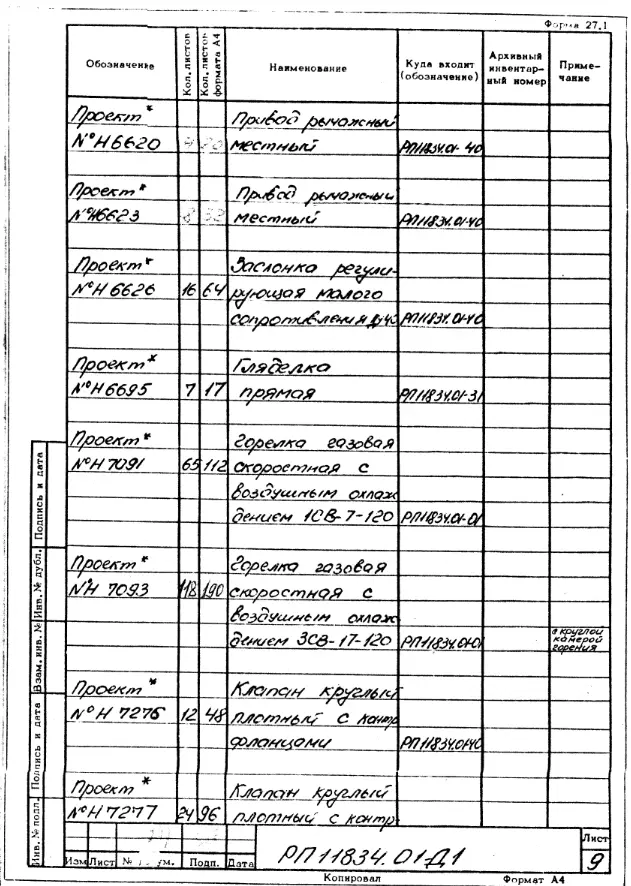 Форма 27.1
Обозначение Кол. листов Кол. листов формата А4 Наименование Куда входит (обозначение) Архивный инвентарный номер Примечание
Проект* Привод рычажный
№Н6620 местный РП11834.01-40
Проект* Привод рычажный
№Н6623 8 32 местный РП11834.01-40
Проект* Заслонка регули-
№Н6626 16 64 рующая малого
сопротивления РП11834.01-40
Проект* Гляделка
№Н6695 7 17 прямая РП11834.01-31
Проект* Горелка газовая
№Н7091 65 112 скоростная с
воздушным охлаж
дением 1СВ-7-120 РП11834.01-01
Проект* Горелка газовая
№Н 7093 118 190 скоростная с
воздушным охлаж
дением 3СВ-17-120 РП11834.01-01 с круглой камерой горения
Проект* Клапан круглый
№Н 7276 12 48 плотный с контр
фланцами РП11834.01-40
Проект* Клапан круглый
№Н7277 24 96 плотный с контр-
Подпись и дата
Инв. № дубл.
Взам. инв. №
Подпись и дата
Инв. № подл.
Изм Лист № Подп. Дата
РП11834.01Д1
Лист
9
Копировал Формат А4